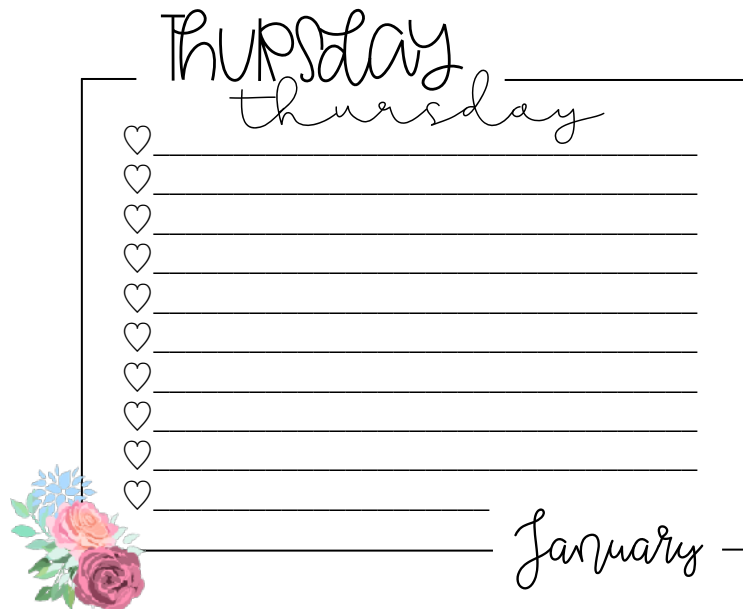 Thursday
thursday
January